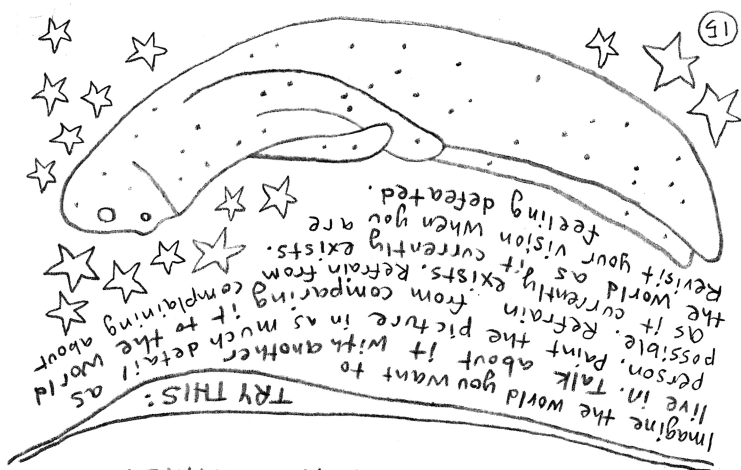 TRY THIS:
Imagine the world you want to
live in. Talk about it with another
person. Paint the picture in as much detail as
possible. Refrain from comparing it to the world
as it currently exists. Refrain from complaining about
the world as it currently exists.
Revisit your vision when you are
feeling defeated.
15